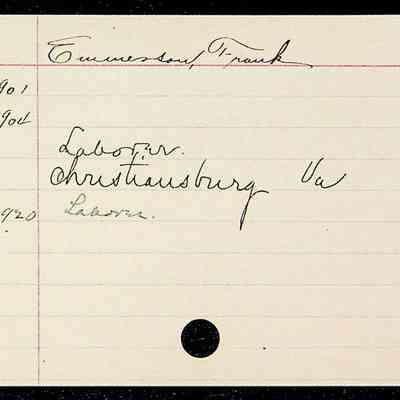 Emmerson, Frank
901
904
Laborer.
Christiansburg Va
920 Laborer.